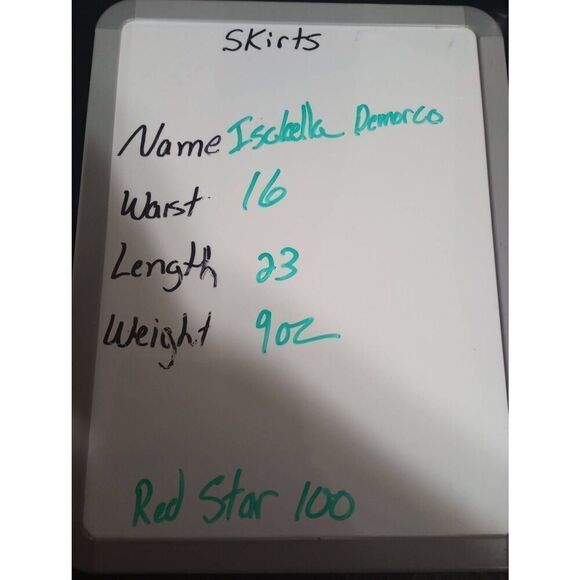 Skirts
Name Isabella Demarco
Waist 16
Length 23
Weight 9oz
Red Star 100